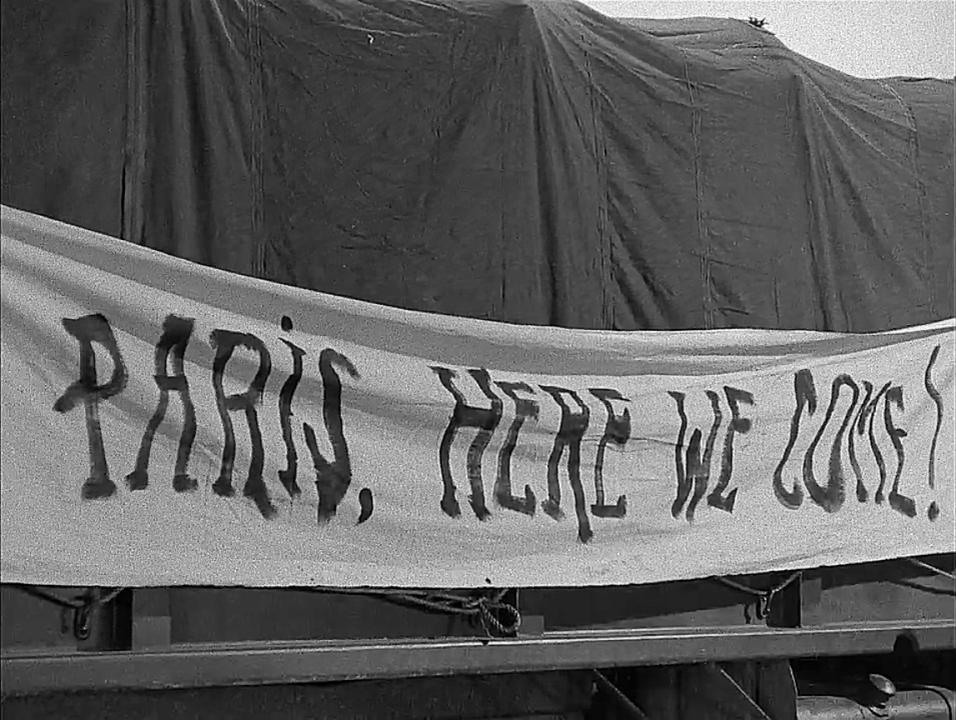 PARiS, HERE WE COME!